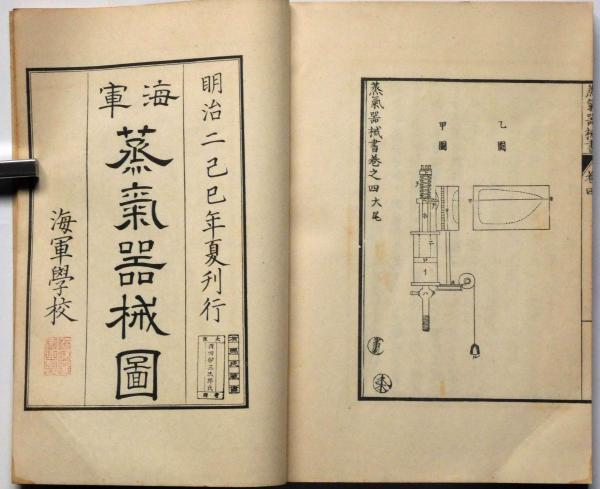 明治二己巳年夏刊行
海軍
蒸氣器械圖
海軍學校
蒸氣器械書
卷四
乙圖
甲圖
蒸氣器械書卷之四大尾